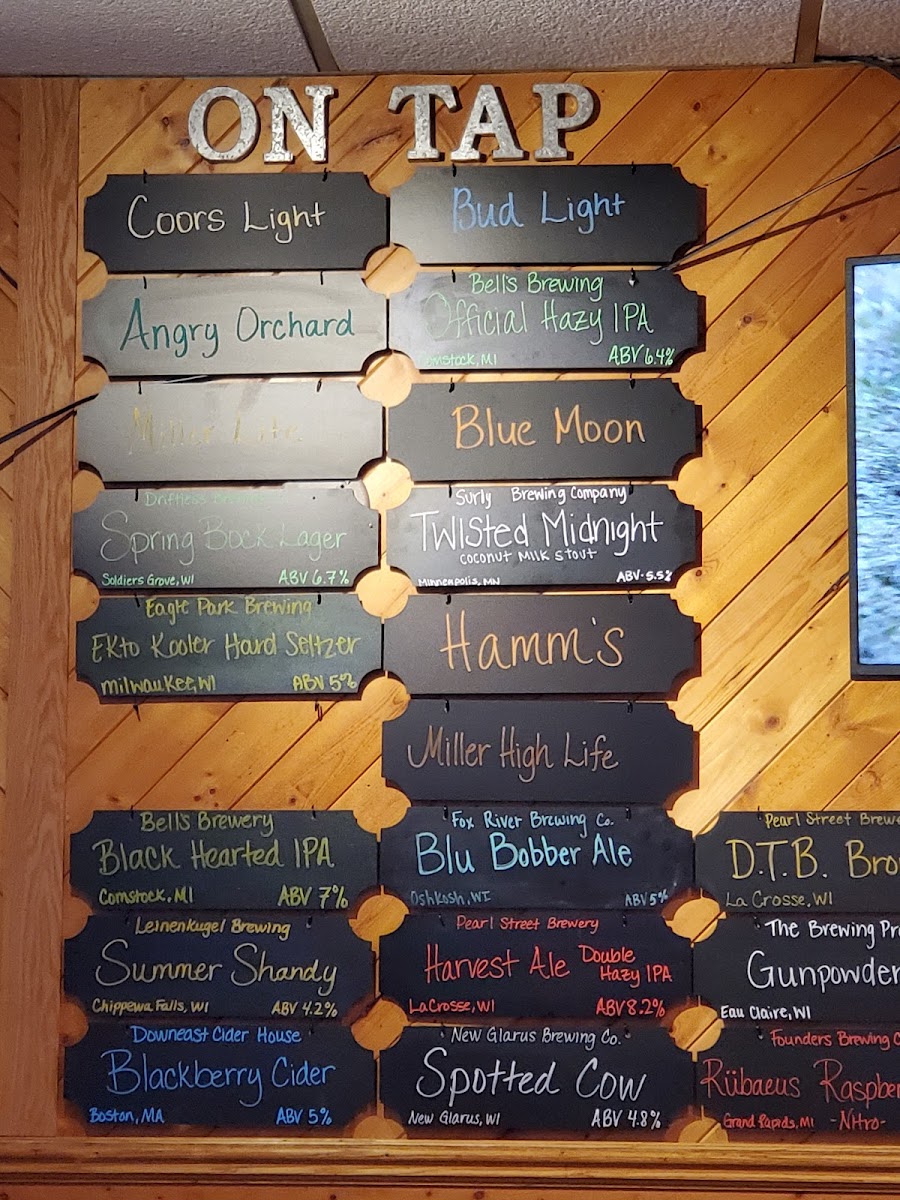 ON TAP
Coors Light
Bud Light
Angry Orchard
Bell's Brewing
Official Hazy IPA
Comstock, MI ABV 6.4%
Miller Lite
Blue Moon
Driftless
Spring Bock Lager
Soldiers Grove, WI ABV 6.7%
Surly Brewing Company
Twisted Midnight
coconut milk stout
Minneapolis, MN ABV-5.5%
Eagle Park Brewing
EKto Kooler Hard Seltzer
Milwaukee, WI ABV 5%
Hamm's
Miller High Life
Bell's Brewery
Black Hearted IPA
Comstock, MI ABV 7%
Fox River Brewing Co.
Blu Bobber Ale
Oshkosh, WI ABV 5%
Pearl Street Brewe
D.T.B. Bro
La Crosse, WI
Leinenkugel Brewing
Summer Shandy
Chippewa Falls, WI ABV 4.2%
Pearl Street Brewery
Harvest Ale Double
Hazy IPA
LaCrosse, WI ABV 8.2%
The Brewing Pr
Gunpowder
Eau Claire, WI
Downeast Cider House
Blackberry Cider
Boston, MA ABV 5%
New Glarus Brewing Co.
Spotted Cow
New Glarus, WI ABV 4.8%
Founders Brewing C
Rübaeus Raspber
Grand Rapids, MI -Nitro-